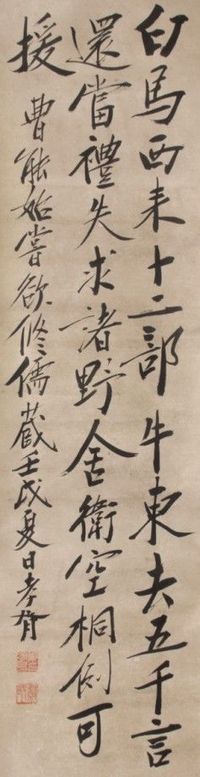 白馬西来十二部牛東去五千言
還當禮失求諸野舍衛空桐例可
援 曹能始嘗欲修儒藏壬戌夏日孝胥